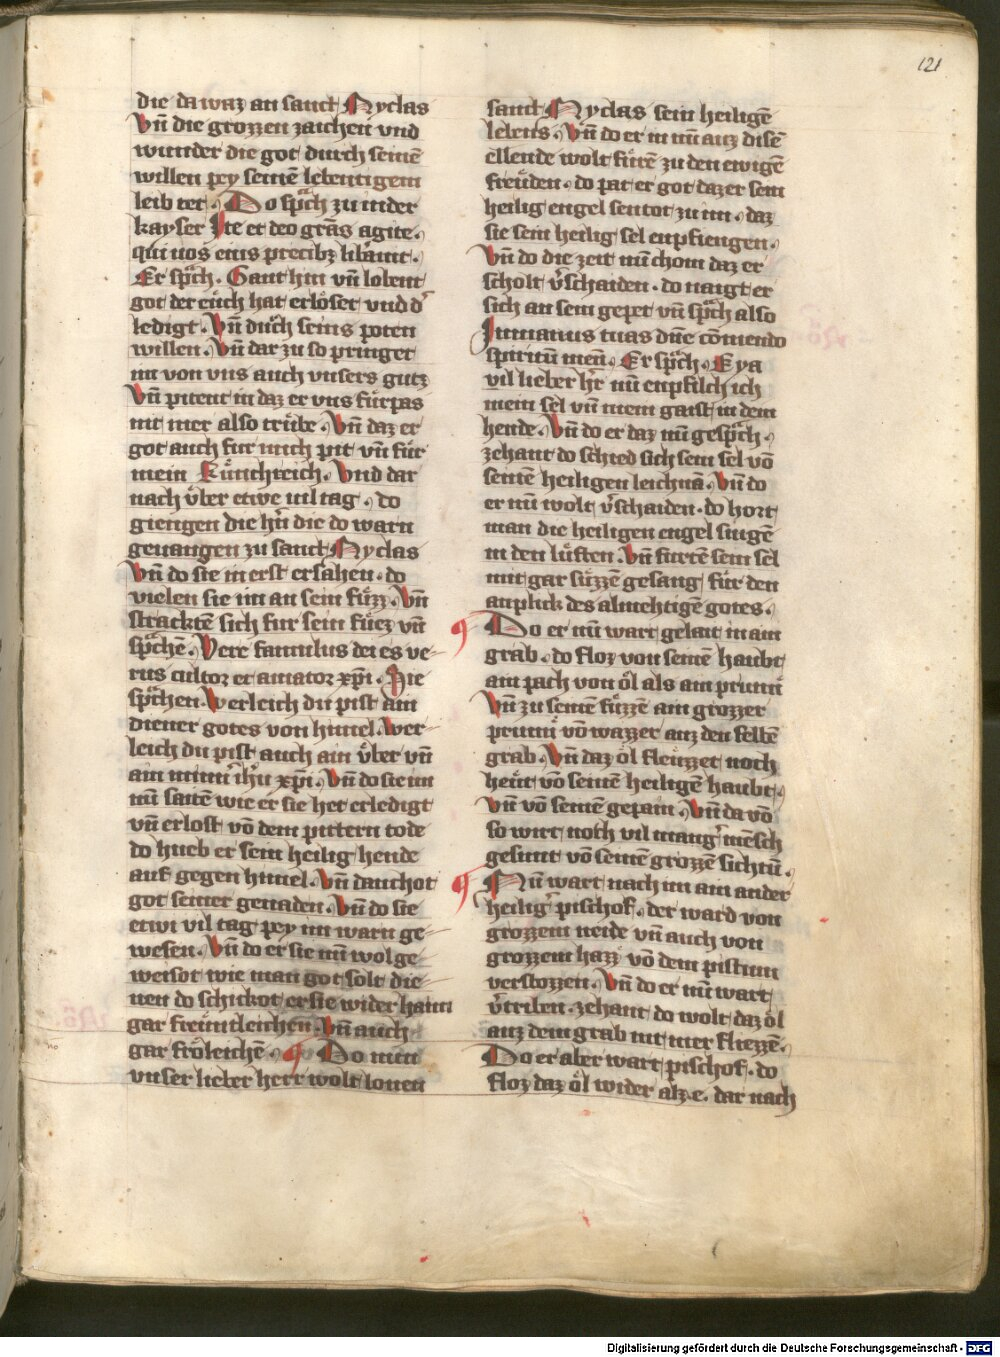 121
die da waz an sanct Nyclas
Vn̄ die grozzen zaichen vnd
wunder die got durch seinē
willen pey seinē lebentigem
leib tet. Do sp̄ch zu in der
kayser Ite et deo grās agite.
qui uos eius precibꝫ lib̄auit.
Er sp̄ch. Gaut hin vn̄ lobent
got der eu̇ch hat erlöset vnd d'
ledigt. Vn̄ durch seins poten
willen. Vn̄ dar zu so pringet
im von vns auch vnsers gutz
Vn̄ pitent in daz er vns fürpas
nit mer also trübe. Vn̄ daz er
got auch für mich pit vn̄ für
mein Künchreich. Vnd dar
nach über etwe uil tag. do
giengen die h'n die do warn
geuangen zu sanct Nyclas
Vn̄ do sie in erst ersahen. do
vielen sie im an sein füzz. Vn̄
stracktē sich fur sein füez vn̄
sp̄chē. Vere famulus dei es ve-
rus cultor et amator xp̄i. Sie
sp̄chen. werleich du pist ain
diener gotes von himel. wer-
leich du pist auch ain über vn̄
ain minn' ih'u xp̄i. Vn̄ do sie im
nū saitē wie er sie het erledigt
vn̄ erlost vō dem pittern tode
do hueb er sein heilig hende
auf gegen himel. Vn̄ danchot
got seiner genaden. Vn̄ do sie
etwi vil tag pey im warn ge-
wesen. Vn̄ do er sie nū wol ge-
weisot wie man got solt die-
nen do schickot er sie wider haim
gar freüntleichen. Vn̄ auch
gar fröleichē. Do nun
vnser lieber herr wolt lonen
sanct Nyclas sein heiligē
lebens. Vn̄ do er in nū auz disē
ellende wolt fürē zu den ewigē
freüden. do pat er got daz er sein
heilig engel sentot zu im. daz
sie sein heilig sel enpfiengen.
Vn̄ do die zeit nū chom daz er
scholt v'schaiden. do naigt er
sich an sein gepet vn̄ sp̄ch also
In manus tuas dn̄e cōmendo
spiritū meū. Er sp̄ch. Eya
vil lieber h'r nū enpfilch ich
mein sel vn̄ mein gaist in dein
hende. Vn̄ do er daz nū gesp̄ch.
zehant do schied sich sein sel vō
seinē heiligen leichnā. Vn̄ do
er nū wolt v'schaiden. do hort
man die heiligen engel singē
in den lüften. Vn̄ furtē sein sel
mit gar süzzē gesang für den
anplick des almehtigē gotes.
Do er nū wart gelait in ain
grab. do floz von seinē haubt
ain pach von öl als ain prunn̄
Vn̄ zu seinē füzzē ain grozzer
prunn̄ vō wazzer auz den selbē
grab. Vn̄ daz öl fleuzzet noch
heüt vō seinē heiligē haubt.
Vn̄ vō seinē gepain. Vn̄ da vō
so wirt noch vil mang' mēsch
gesunt vō seinē grozzē sichtū.
Nū wart nach im ain ander
heilig' pischof. der ward von
grozzem neide vn̄ auch von
grozzem hazz vō dem pistum
verstozzen. Vn̄ do er nū wart
v'triben. zehant do wolt daz öl
auz dem grab nit mer fliezzē.
Do er aber wart pischof. do
floz daz öl wider alz e. dar nach
Digitalisierung gefördert durch die Deutsche Forschungsgemeinschaft - DFG